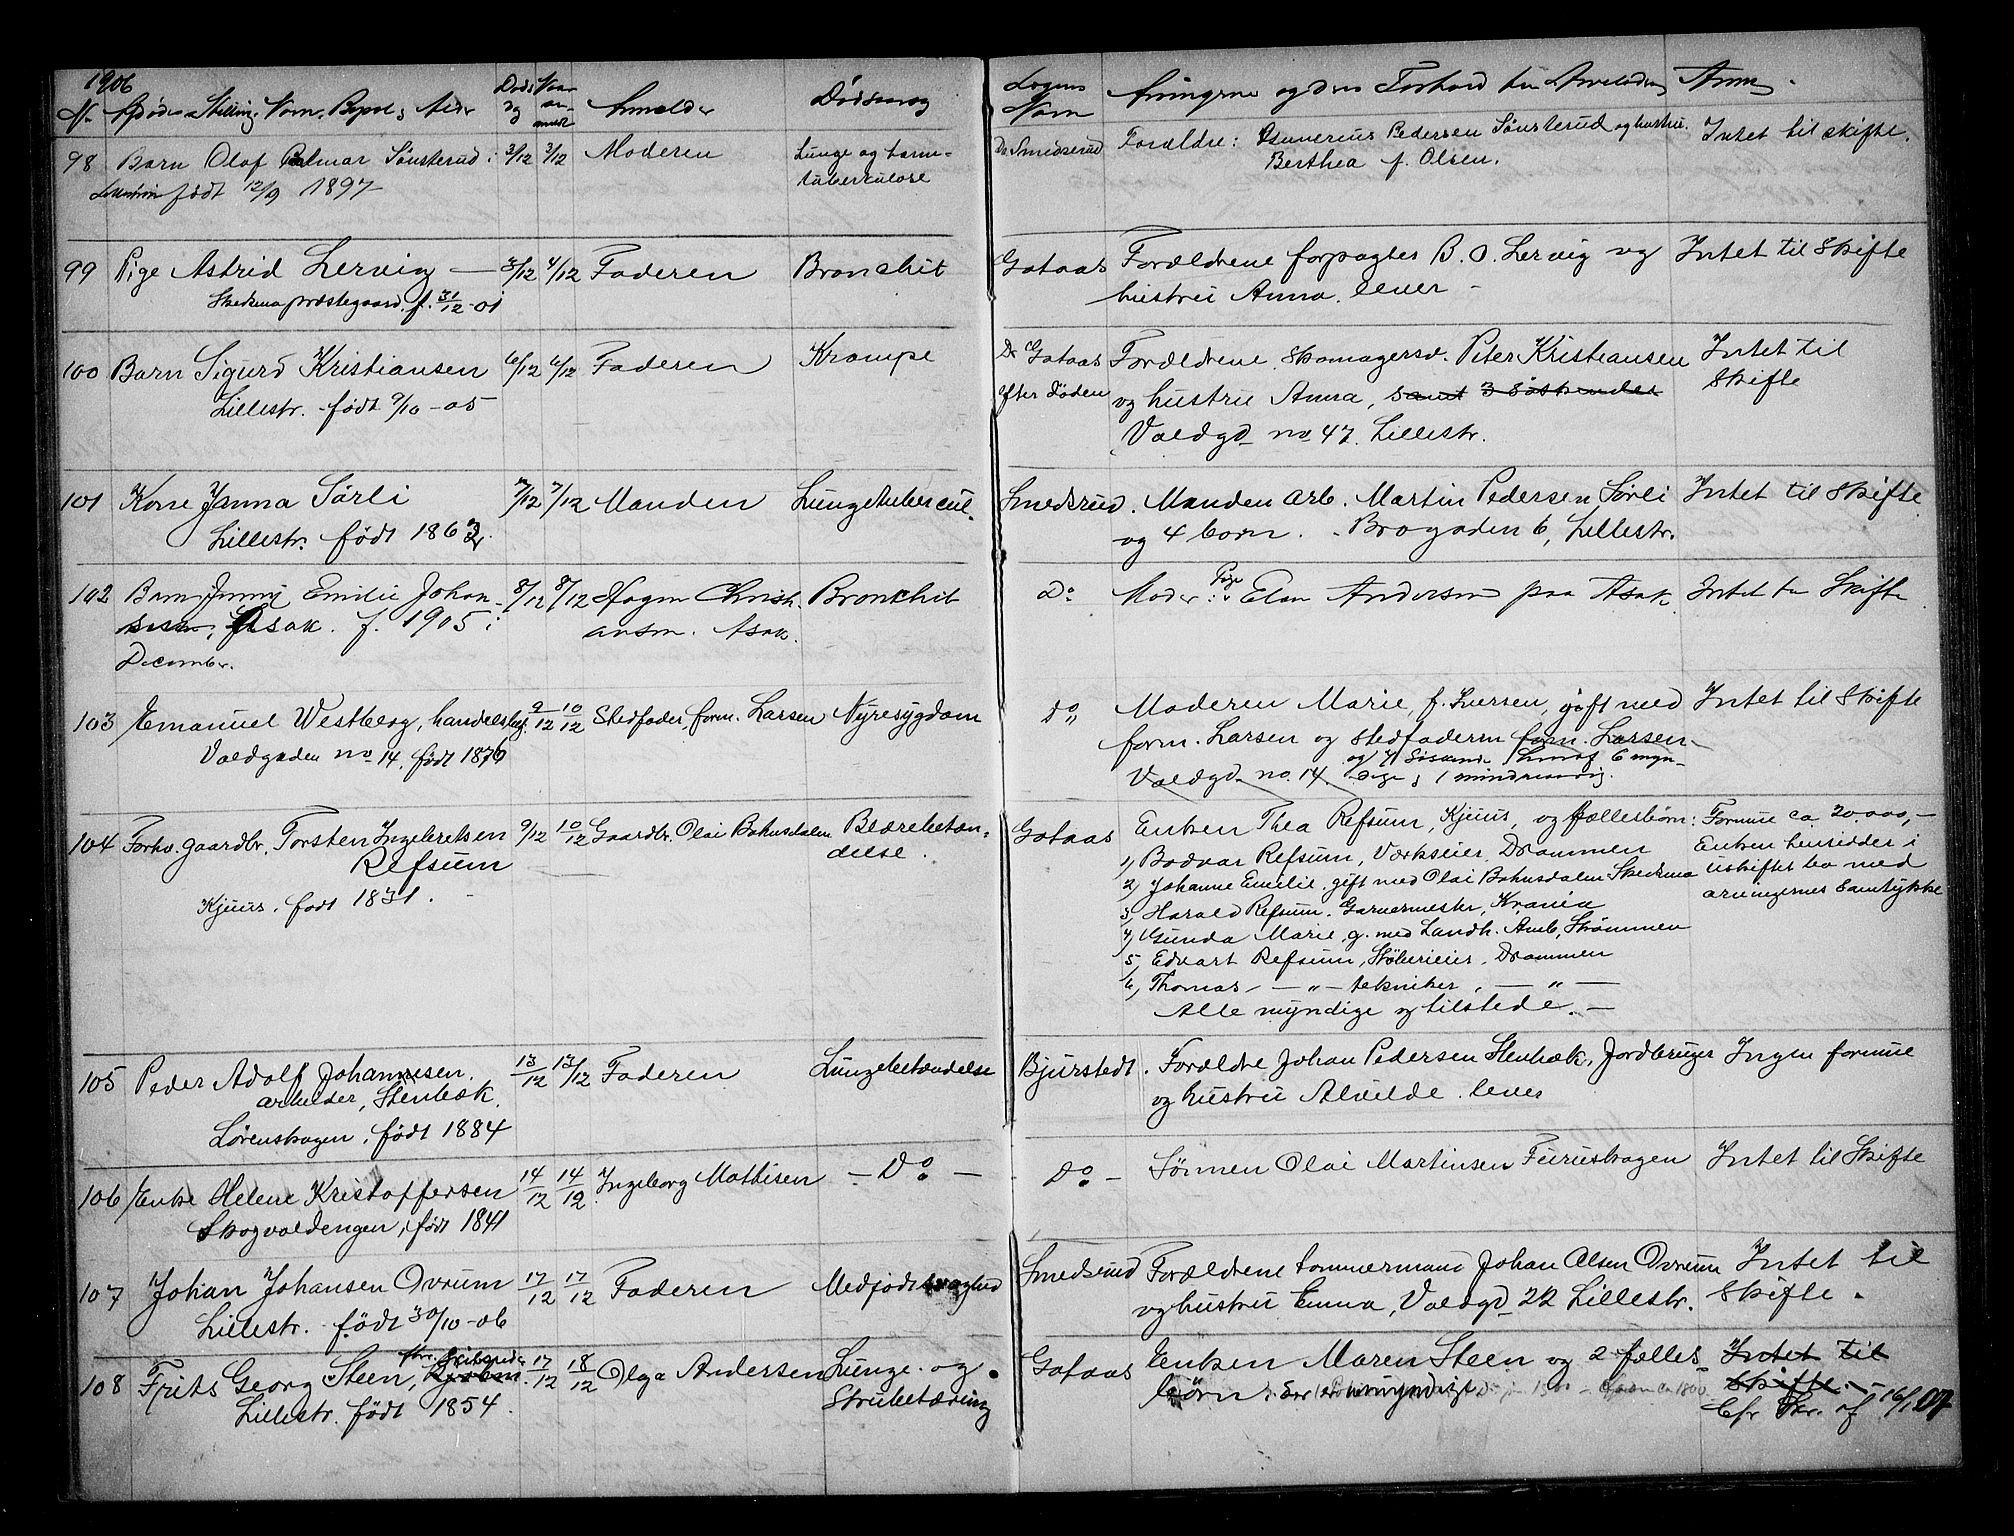 1906
No Afdødes Stilling, Navn, Bopæl, Alder
Døds dag
Anmelder
Dødsaarsag
Lægens Navn
Arvingerne og deres Forhold til Arveladeren
Anm.
98 Barn Olaf Palmar Sønsterud i 3/12 3/12 Moderen Lunge og tarm-
født 12/9 1897 tuberkulose
Dr Smedsrud Forældre: Pedersen Sønsterud og hustru Intet til skifte.
Berthea f. Olsen.
99 Pige Astrid Lervig — 3/12 4/12 Faderen Bronchit
Skedsmo præstegaard. f. 31/12 -01
Gotaas Forældrene forpagter B. O. Lervig og Intet til Skifte
hustru Anna. lever -
100 Barn Sigurd Kristiansen 6/12 6/12 Faderen Krampe
Lillestr. - født 9/10 -05
Dr Gotaas Forældrene Skomagersv. Peter Kristiansen Intet til
efter døden og hustru Anna, samt 3 søskende Skifte
Voldgd no 47. Lillestr.
101 Kone Janna Sørli 7/12 7/12 Manden Lungetubercul.
Lillestr. født 1863
Smedsrud. Manden arb. Martin Pedersen Sørli Intet til Skifte.
og 4 børn. - Brogaden 6, Lillestr.
102 Barn Jenny Emilie Johan- 8/12 8/12 Hagen Christi- Bronchit
sen, Asak. f. 1905 i ansen. Asak.
December.
Do Moder: Pige Elen Andersen paa Asak. Intet til Skifte
103 Emanuel Westberg, handelsbej. 9/12 10/12 Stedfader, form. Larsen Nyresygdom
Voldgaden no 14. født 1876
Do Moderen Marie, f. Iversen, gift med Intet til Skifte
form. Larsen og stedfaderen form. Larsen
Voldgd no. 14. og 7 Søskende hvoraf 6 myn-
dige og 1 mindreaarig.
104 Forhv. gaardbr. Torsten Ingebretsen 9/12 10/12 Gaardbr. Olai Bohnsdalen Blærebetæn-
Refsum delse.
Kjuus. født 1831. -
Gotaas Enken Thea Refsum, Kjuus, og fællesbørn: Formue ca. 20.000,-
1) Bodvar Refsum, Værkseier, Drammen Enken hensidder i
2) Johanne Emilie. gift med Olai Bohnsdalen Skedsmo uskiftet bo med
3) Harald Refsum. Garvermester, Krania arvingernes Samtykke
4) Gunda Marie, g. med Landh. Amb, Strømmen
5) Edvart Refsum, Støberieier. Drammen
6) Thomas — " — tekniker, — " —
Alle myndige og tilstede. —
105 Peder Adolf Johannesen. 13/12 13/12 Faderen Lungebetændelse
arbeider, Stenbæk.
Lørenskogen. født 1884
Bjurstedt. Forældre Johan Pedersen Stenbæk, Jordbruger Ingen formue
og hustru Alvilde. lever
106 Enke Helene Kristoffersen 14/12 14/12 Ingeborg Mathisen — Do —
Skogvoldengen, født 1841
Do — Sønnen Olai Martinsen Furuskogen Intet til Skifte
107 Johan Johansen Ovrum 17/12 17/12 Faderen Medfødt svaghed
Lillestr. - født 30/10 -06
Smedsrud Forældrene tømmermand Johan Olsen Ovrum Intet til
og hustru Emma, Voldgd 22 Lillestr. Skifte.
108 Frits Georg Steen, 17/12 18/12 Olga Andersen Lunge- og
Lillestr. født 1854. Strubetæring
Gotaas Enken Maren Steen og 2 fælles- Intet til
børn. Skifte. —
Cfr. Skr. af 16/1 07